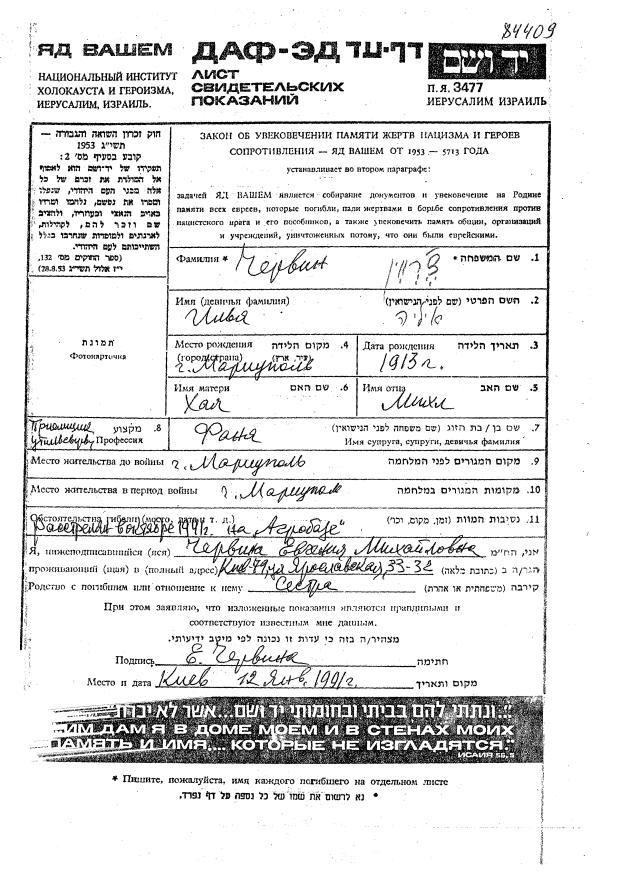 84409
ЯД ВАШЕМ ДАФ-ЭД דף-עד יד ושם
НАЦИОНАЛЬНЫЙ ИНСТИТУТ
ХОЛОКАУСТА И ГЕРОИЗМА,
ИЕРУСАЛИМ, ИЗРАИЛЬ.
ЛИСТ
СВИДЕТЕЛЬСКИХ
ПОКАЗАНИЙ
П.Я. 3477
ИЕРУСАЛИМ ИЗРАИЛЬ
חוק זכרון השואה והגבורה —
תשי"ג 1953
קובע בסעיף מס' 2:
תפקידו של יד-ושם הוא לאסוף
אל המולדת את זכרם של כל
אלה מבני העם היהודי, שנפלו
ומסרו את נפשם, נלחמו ומרדו
באויב הנאצי ובעוזריו, ולהציב
שם וזכר להם, לקהילות,
לארגונים ולמוסדות שנחרבו בגלל
השתייכותם לעם היהודי.
(ספר החוקים מס' 132,
י"ז אלול תשי"ג 28.8.53)
ЗАКОН ОБ УВЕКОВЕЧЕНИИ ПАМЯТИ ЖЕРТВ НАЦИЗМА И ГЕРОЕВ
СОПРОТИВЛЕНИЯ — ЯД ВАШЕМ ОТ 1953 — 5713 ГОДА
устанавливает во втором параграфе:
задачей ЯД ВАШЕМ является собирание документов и увековечение на Родине
памяти всех евреев, которые погибли, пали жертвами в борьбе сопротивления против
нацистского врага и его пособников, а также увековечить память общин, организаций
и учреждений, уничтоженных потому, что они были еврейскими.
Фамилия * Червин 1. שם המשפחה *
Имя (девичья фамилия) 2. השם הפרטי (שם לפני הנישואין)
Илья איליה
תמונת
Фотокарточка
Место рождения 4. מקום הלידה
(город/страна) (עיר, ארץ)
г. Мариуполь
Дата рождения 3. תאריך הלידה
1913 г.
Имя матери 6. שם האם
Хая
Имя отца 5. שם האב
Михл
8. מקצוע
Профессия
Фаня
7. שם בן / בת הזוג (שם משפחה לפני הנישואין)
Имя супруга, супруги, девичья фамилия
Место жительства до войны г. Мариуполь 9. מקום המגורים לפני המלחמה
Место жительства в период войны г. Мариуполь 10. מקומות המגורים במלחמה
Обстоятельства гибели (место, дата и т. д.) 11. נסיבות המוות (זמן, מקום, וכו')
Расстрелян в октябре 1941г. на "Агробазе"
Я, нижеподписавшийся (яся) Червина Евгения Михайловна אני, הח"מ
проживающий (щая) в (полный адрес) Киев-79, ул Ярославская, 33-32 הגר/ה ב (כתובת מלאה)
Родство с погибшим или отношение к нему Сестра קירבה (משפחתית או אחרת)
При этом заявляю, что изложенные показания являются правдивыми и
соответствуют известным мне данным.
מצהיר/ה בזה כי עדות זו נכונה לפי מיטב ידיעותי.
Подпись Е. Червина חתימה
Место и дата Киев 12 янв. 1991г. מקום ותאריך
"...ונתתי להם בביתי ובחומותי יד ושם... אשר לא יכרת"
ИМ ДАМ Я В ДОМЕ МОЕМ И В СТЕНАХ МОИХ
ПАМЯТЬ И ИМЯ.... КОТОРЫЕ НЕ ИЗГЛАДЯТСЯ."
ИСАИЯ 56,5
* Пишите, пожалуйста, имя каждого погибшего на отдельном листе
* נא לרשום את שמו של כל נספה על דף נפרד.